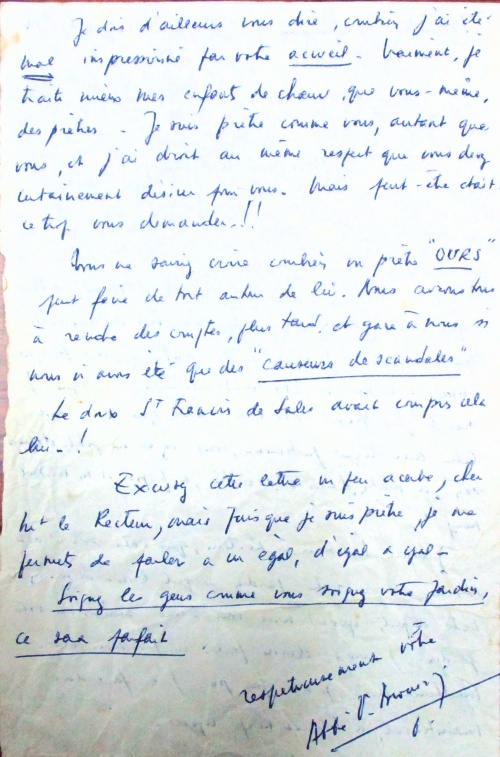 Je dois d'ailleurs vous dire, combien j'ai été
mal impressionné par votre accueil. Vraiment, je
traite mieux mes enfants de chœur, que vous-même,
des prêtres. Je suis prêtre comme vous, autant que
vous, et j'ai droit au même respect que vous devez
certainement désirer pour vous. Mais peut-être était
ce trop vous demander.!!
Vous ne sauriez croire combien un prêtre "OURS"
peut faire de tort autour de lui. Nous aurons tous
à rendre des comptes, plus tard, et gare à nous si
nous n'avons été que des "causeurs de scandales"
Le doux St Francis de Sales avait compris cela
lui.!
Excusez cette lettre un peu acerbe, cher
Mr le Recteur, mais puisque je suis prêtre, je me
permets de parler à un égal, d'égal à égal.
Soignez les gens comme vous soignez votre jardin,
ce sera parfait
respectueusement vôtre
Abbé